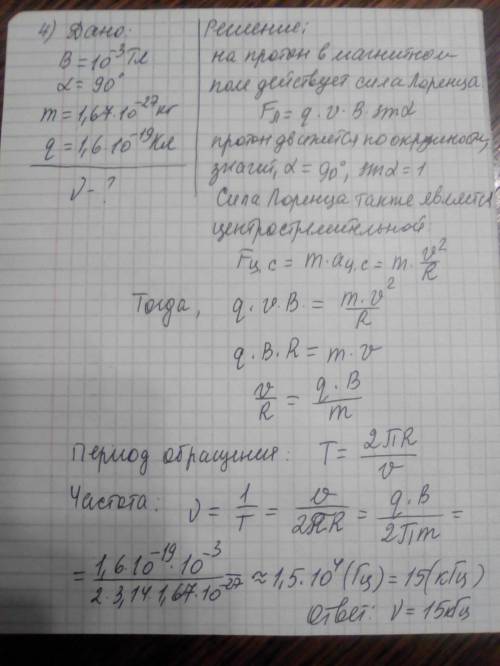 4) Дано:
B = 10^-3 Тл
α = 90°
m = 1,67·10^-27 кг
q = 1,6·10^-19 Кл
ν - ?
Решение:
на протон в магнитном
поле действует сила Лоренца
Fл = q·v·B·sinα
протон движется по окружности,
значит, α = 90°, sinα = 1
Сила Лоренца также является
центростремительной:
Fц.с = m·aц.с = m·v²/R
Тогда, q·v·B· = m·v²/R
q·B·R = m·v
v/R = q·B/m
Период обращения: T = 2ΠR/v
Частота: ν = 1/T = v/2ΠR = q·B/2Πm =
= 1,6·10^-19·10^-3/2·3,14·1,67·10^-27 ≈ 1,5·10^4 (Гц) = 15 (кГц)
Ответ: ν = 15кГц